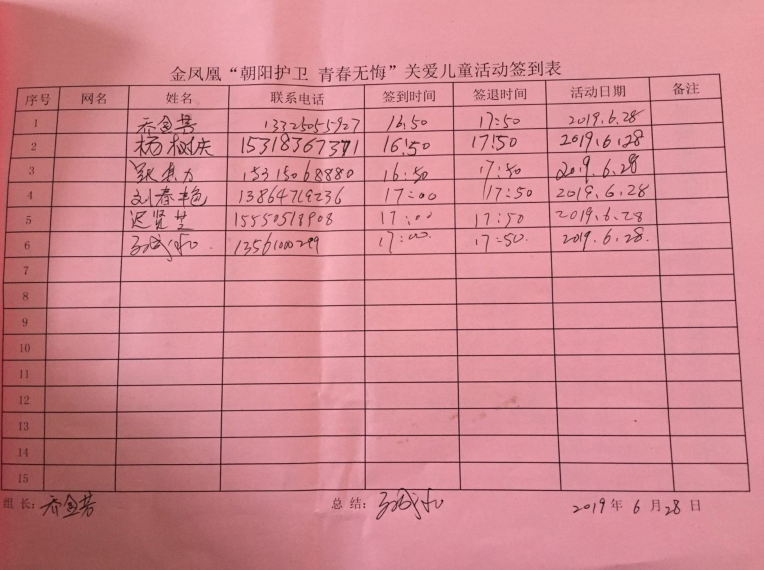 金凤凰“朝阳护卫 青春无悔”关爱儿童活动签到表
序号 网名 姓名 联系电话 签到时间 签退时间 活动日期 备注
1 乔金芳 13325055927 16:50 17:50 2019.6.28
2 杨 15318367371 16:50 17:50 2019.6.28
3 张 力 15315068880 16:50 17:50 2019.6.28
4 刘春艳 17:00 17:50 2019.6.28
5 迟贤芝 17:00 17:50 2019.6.28
6 17:00 17:50 2019.6.28
7
8
9
10
11
12
13
14
15
组长：乔金芳 总结： 2019年6月28日